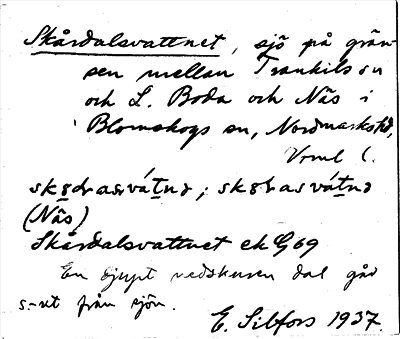 Skårdalsvattnet, sjö på grän-
sen mellan Trankils sn
och L. Boda och Näs i
Blomskogs sn, Nordmarks hd,
Vrml l.
(Näs)
Skårdalsvattnet ek G69
En djupt nedskuren dal går
s.-ut från sjön.
E. Silfors 1937.